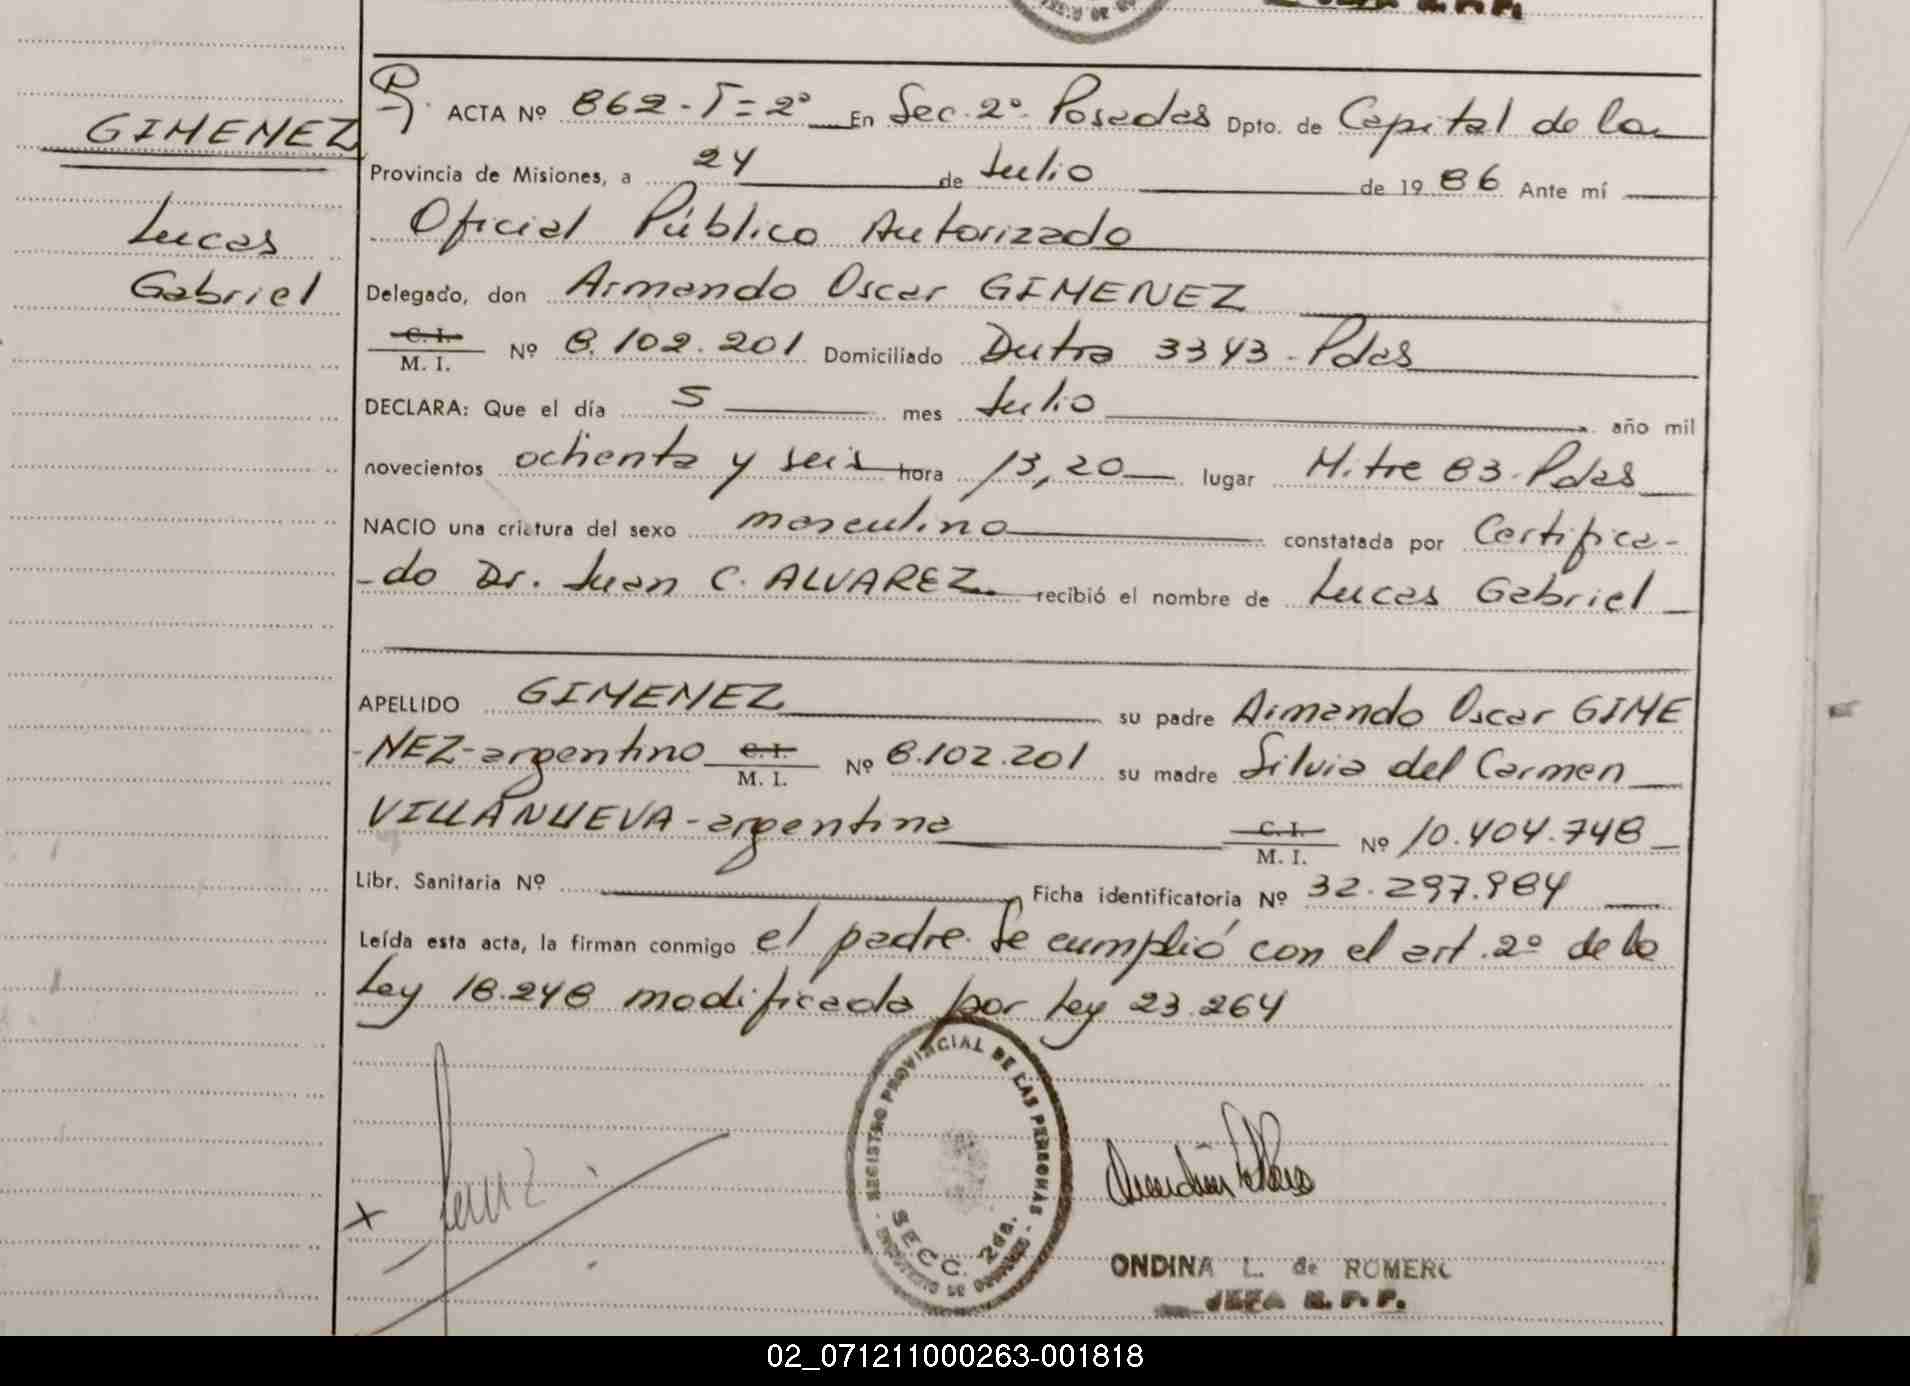 GIMENEZ
Lucas
Gabriel
ACTA Nº 862 - T = 2º En Sec. 2º. Posadas Dpto. de Capital de la
Provincia de Misiones, a 24 de Julio de 1986 Ante mí
Oficial Público Autorizado
Delegado, don Armando Oscar GIMENEZ
C. I.
M. I. Nº 8.102.201 Domiciliado Dutra 3343 - Pdas
DECLARA: Que el día 5 mes Julio año mil
novecientos ochenta y seis hora 13,20 lugar Mitre 83 - Pdas
NACIO una criatura del sexo masculino constatada por Certifica-
-do Dr. Juan C. ALVAREZ. recibió el nombre de Lucas Gabriel
APELLIDO GIMENEZ su padre Armando Oscar GIME
-NEZ - argentino C. I. M. I. Nº 8.102.201 su madre Silvia del Carmen
VILLANUEVA - argentina C. I. M. I. Nº 10.404.748
Libr. Sanitaria Nº Ficha identificatoria Nº 32.297.984
Leída esta acta, la firman conmigo el padre. Se cumplió con el art. 2º de la
Ley 18.248 modificada por Ley 23.264
REGISTRO PROVINCIAL DE LAS PERSONAS
SECC. 2da.
ONDINA L. de ROMERO
JEFA R. P. P.
02_071211000263-001818